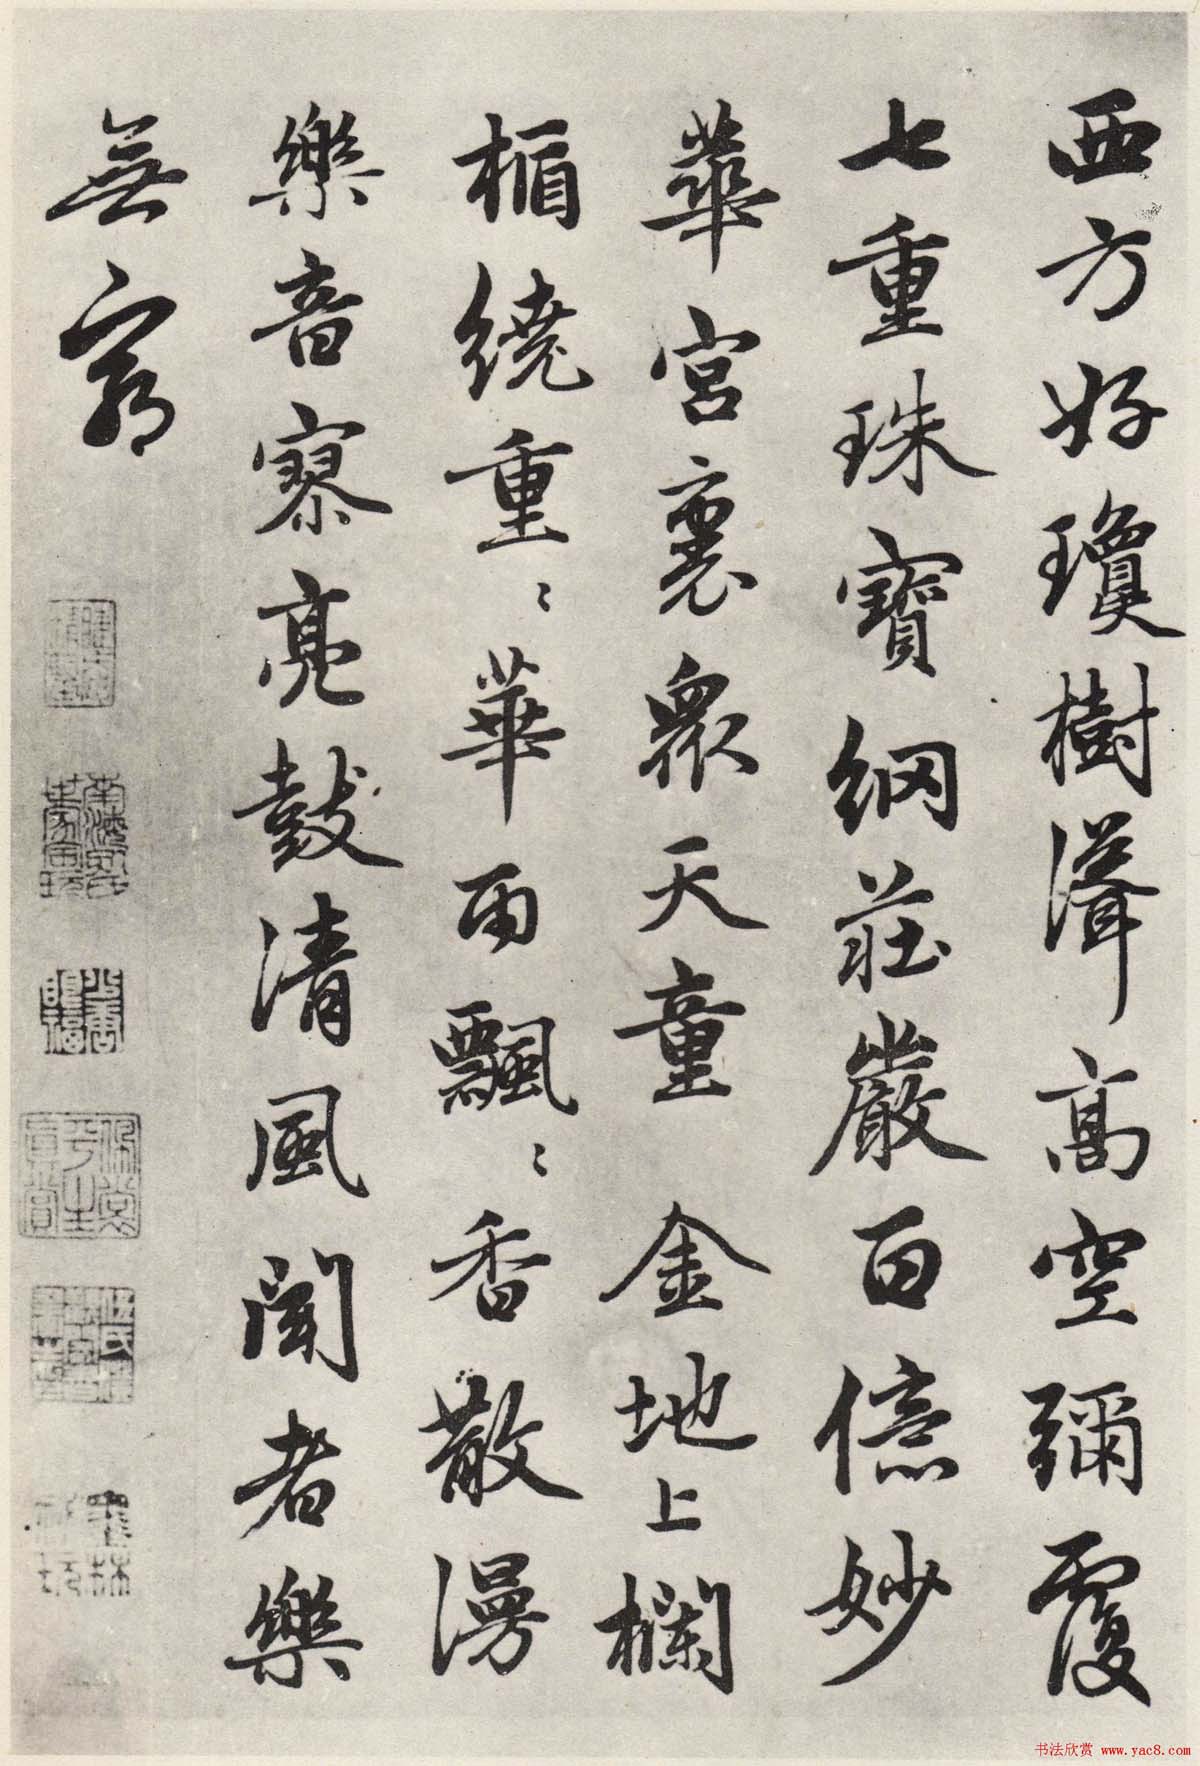 西方好瓊樹聳高空彌覆
七重珠寶網莊嚴百億妙
華宮裏衆天童金地上欄
楯繞重〻華雨飄〻香散漫
樂音寥亮鼓清風聞者樂
無窮
书法欣赏 www.yac8.com